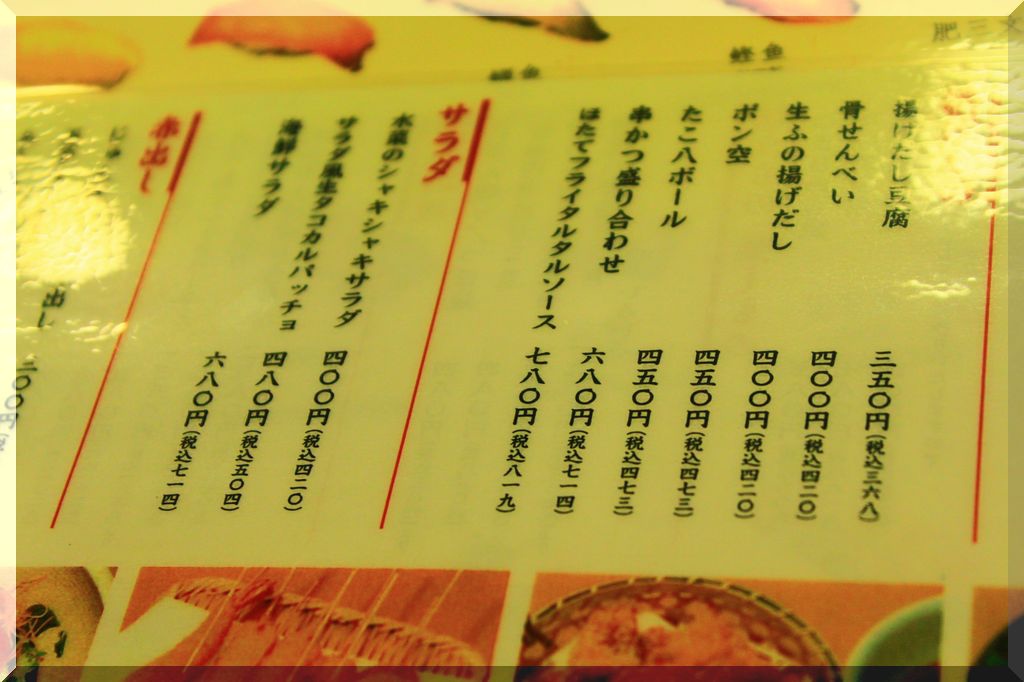 揚げだし豆腐 三五〇円(税込三六八)
骨せんべい 四〇〇円(税込四二〇)
生ふの揚げだし 四〇〇円(税込四二〇)
ポン空 四五〇円(税込四七三)
たこ八ボール 四五〇円(税込四七三)
串かつ盛り合わせ 六八〇円(税込七一四)
ほたてフライタルタルソース 七八〇円(税込八一九)
サラダ
水菜のシャキシャキサラダ 四〇〇円(税込四二〇)
サラダ風生タコカルパッチョ 四八〇円(税込五〇四)
海鮮サラダ 六八〇円(税込七一四)
赤出し